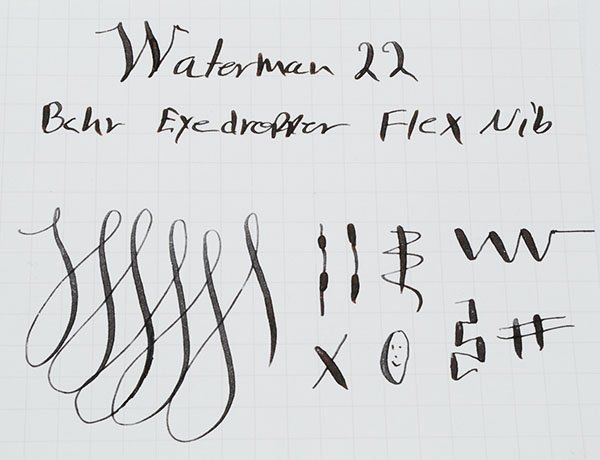 Waterman 22
Bchr Eyedropper Flex Nib